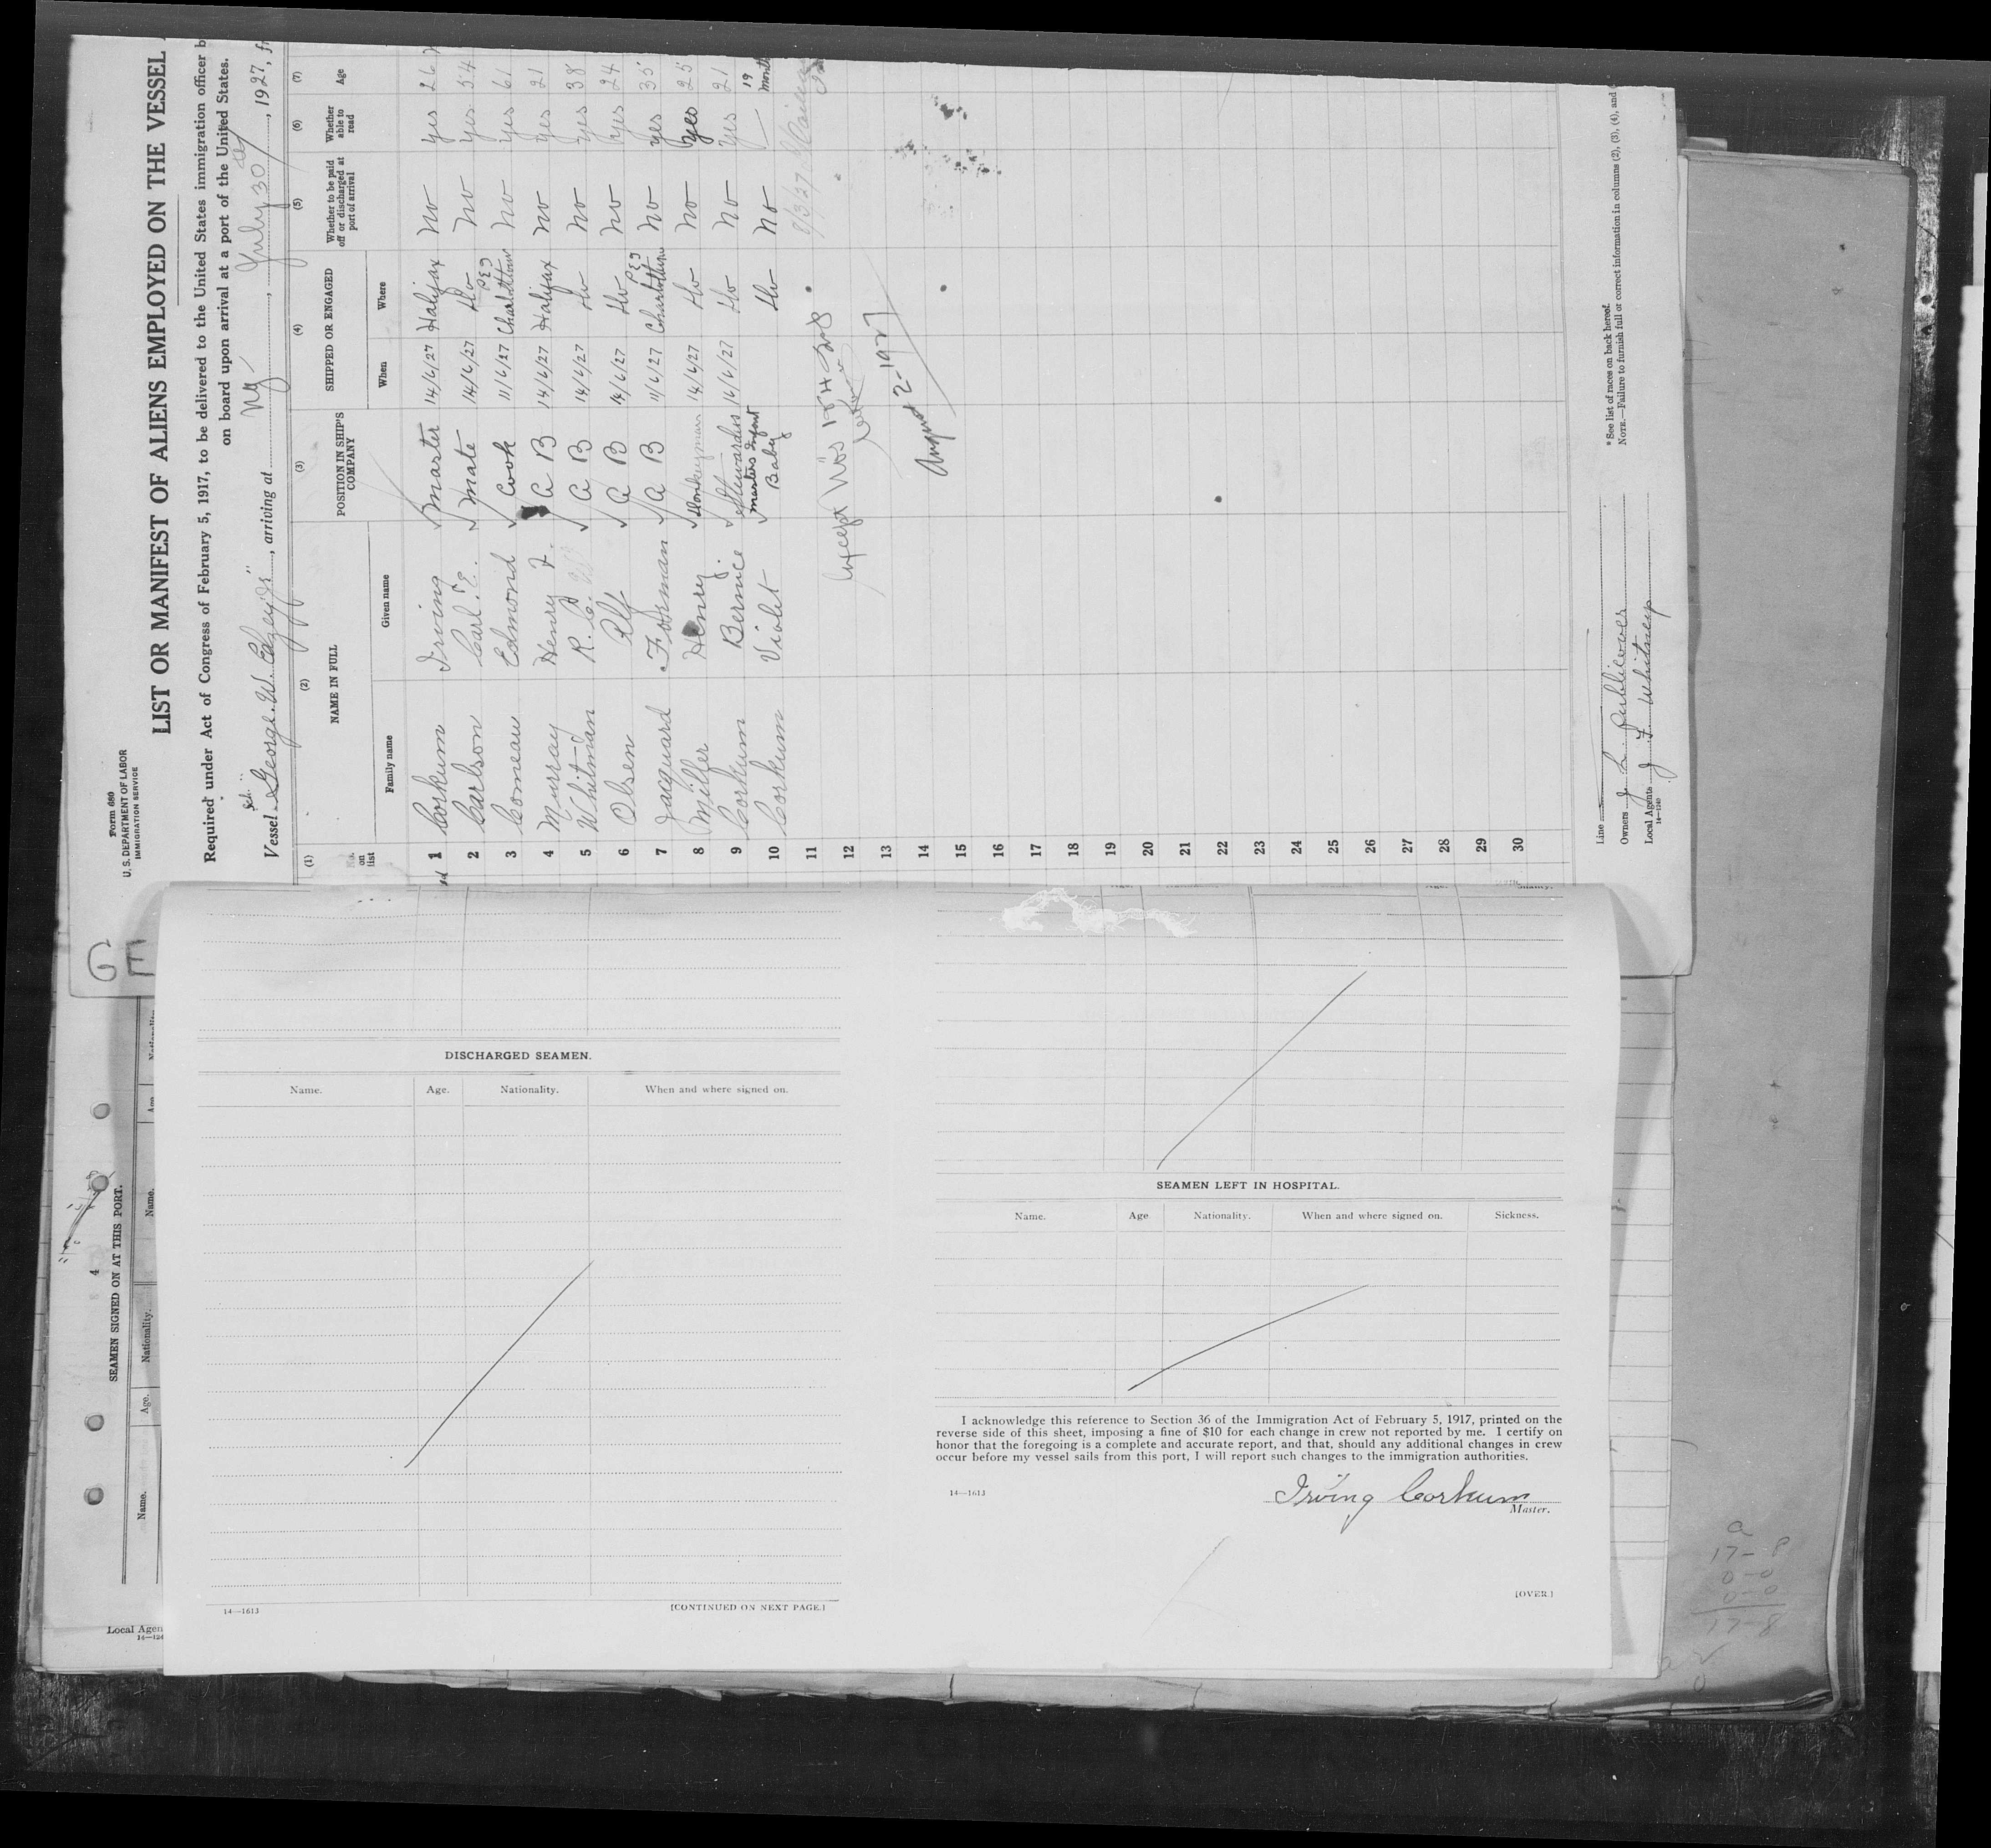 Form 680
U. S. DEPARTMENT OF LABOR
IMMIGRATION SERVICE
LIST OR MANIFEST OF ALIENS EMPLOYED ON THE VESSEL
Required under Act of Congress of February 5, 1917, to be delivered to the United States immigration officer b
on board upon arrival at a port of the United States.
Vessel Sch. George W. , arriving at Ny , July 30 , 1927, fr
(1) (2) (3) (4) (5) (6) (7)
No. on list NAME IN FULL POSITION IN SHIP'S COMPANY SHIPPED OR ENGAGED Whether to be paid off or discharged at port of arrival Whether able to read Age
Family name Given name When Where
1 Corkum Irving Master 14/6/27 Halifax No yes 26
2 Carlson Carl E. Mate 14/6/27 Do No yes 54
3 Comeau Edmond Cook 11/6/27 No yes 61
4 Murray Henry F. A B 14/6/27 Halifax No yes 21
5 Whitman R. C. A B 14/6/27 Do No yes 38
6 Olsen Alf A B 14/6/27 Do No yes 24
7 Jacquard Forman A B 11/6/27 No yes 35
8 Miller Henry Donkeyman 14/6/27 Do No yes 25
9 Corkum Bernice J. Stewardess 14/6/27 Do No yes 21
10 Corkum Violet Masters Infant Baby Do No 19 month
11
12
13
14
15
16
17
18
19
20
21
22
23
24
25
26
27
28
29
30
except Nos
August 2-1927
Line
Owners
Local Agents J F Whitney
14—1240
* See list of races on back hereof.
NOTE.—Failure to furnish full or correct information in columns (2), (3), (4), and
G E
4
SEAMEN SIGNED ON AT THIS PORT.
Name. Age. Nationality. Name. Age.
Local Agen
DISCHARGED SEAMEN.
Name. Age. Nationality. When and where signed on.
14—1613
[CONTINUED ON NEXT PAGE.]
SEAMEN LEFT IN HOSPITAL.
Name. Age Nationality. When and where signed on. Sickness.
I acknowledge this reference to Section 36 of the Immigration Act of February 5, 1917, printed on the
reverse side of this sheet, imposing a fine of $10 for each change in crew not reported by me. I certify on
honor that the foregoing is a complete and accurate report, and that, should any additional changes in crew
occur before my vessel sails from this port, I will report such changes to the immigration authorities.
14—1613
Irving Corkum
Master.
[OVER.]
a
17-8
0-0
0-0
17-8